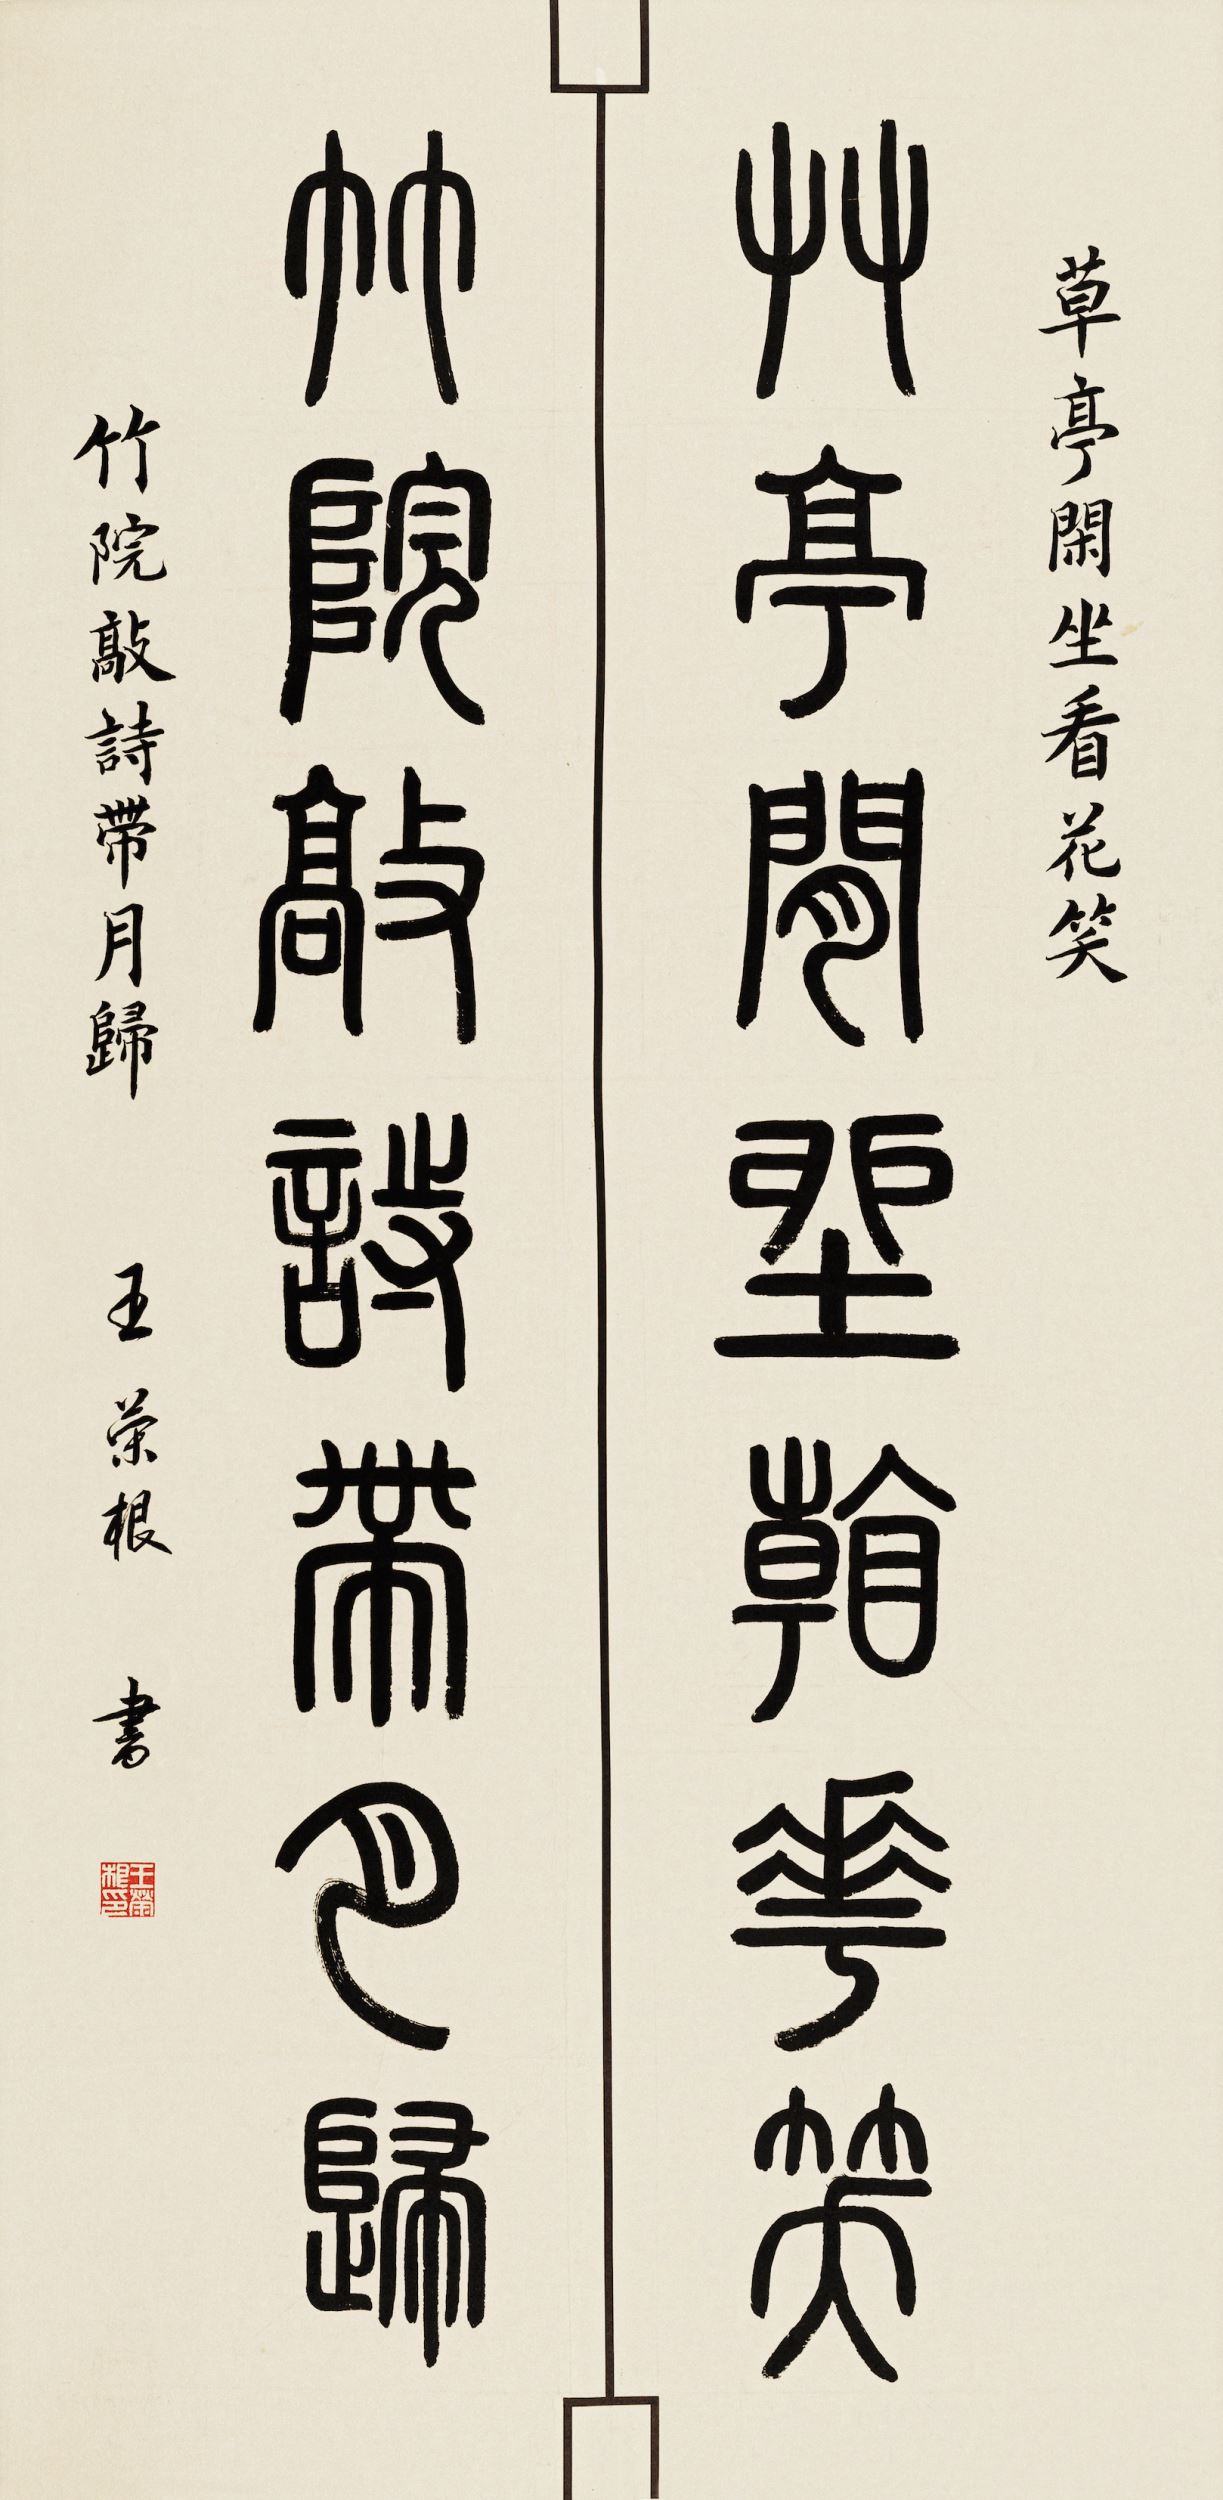 草亭閑坐看花笑
艸亭閒坐𩏑華笑
竹院敲詩帶月歸
竹院敲詩帶月歸
王荣根 書
王榮根印